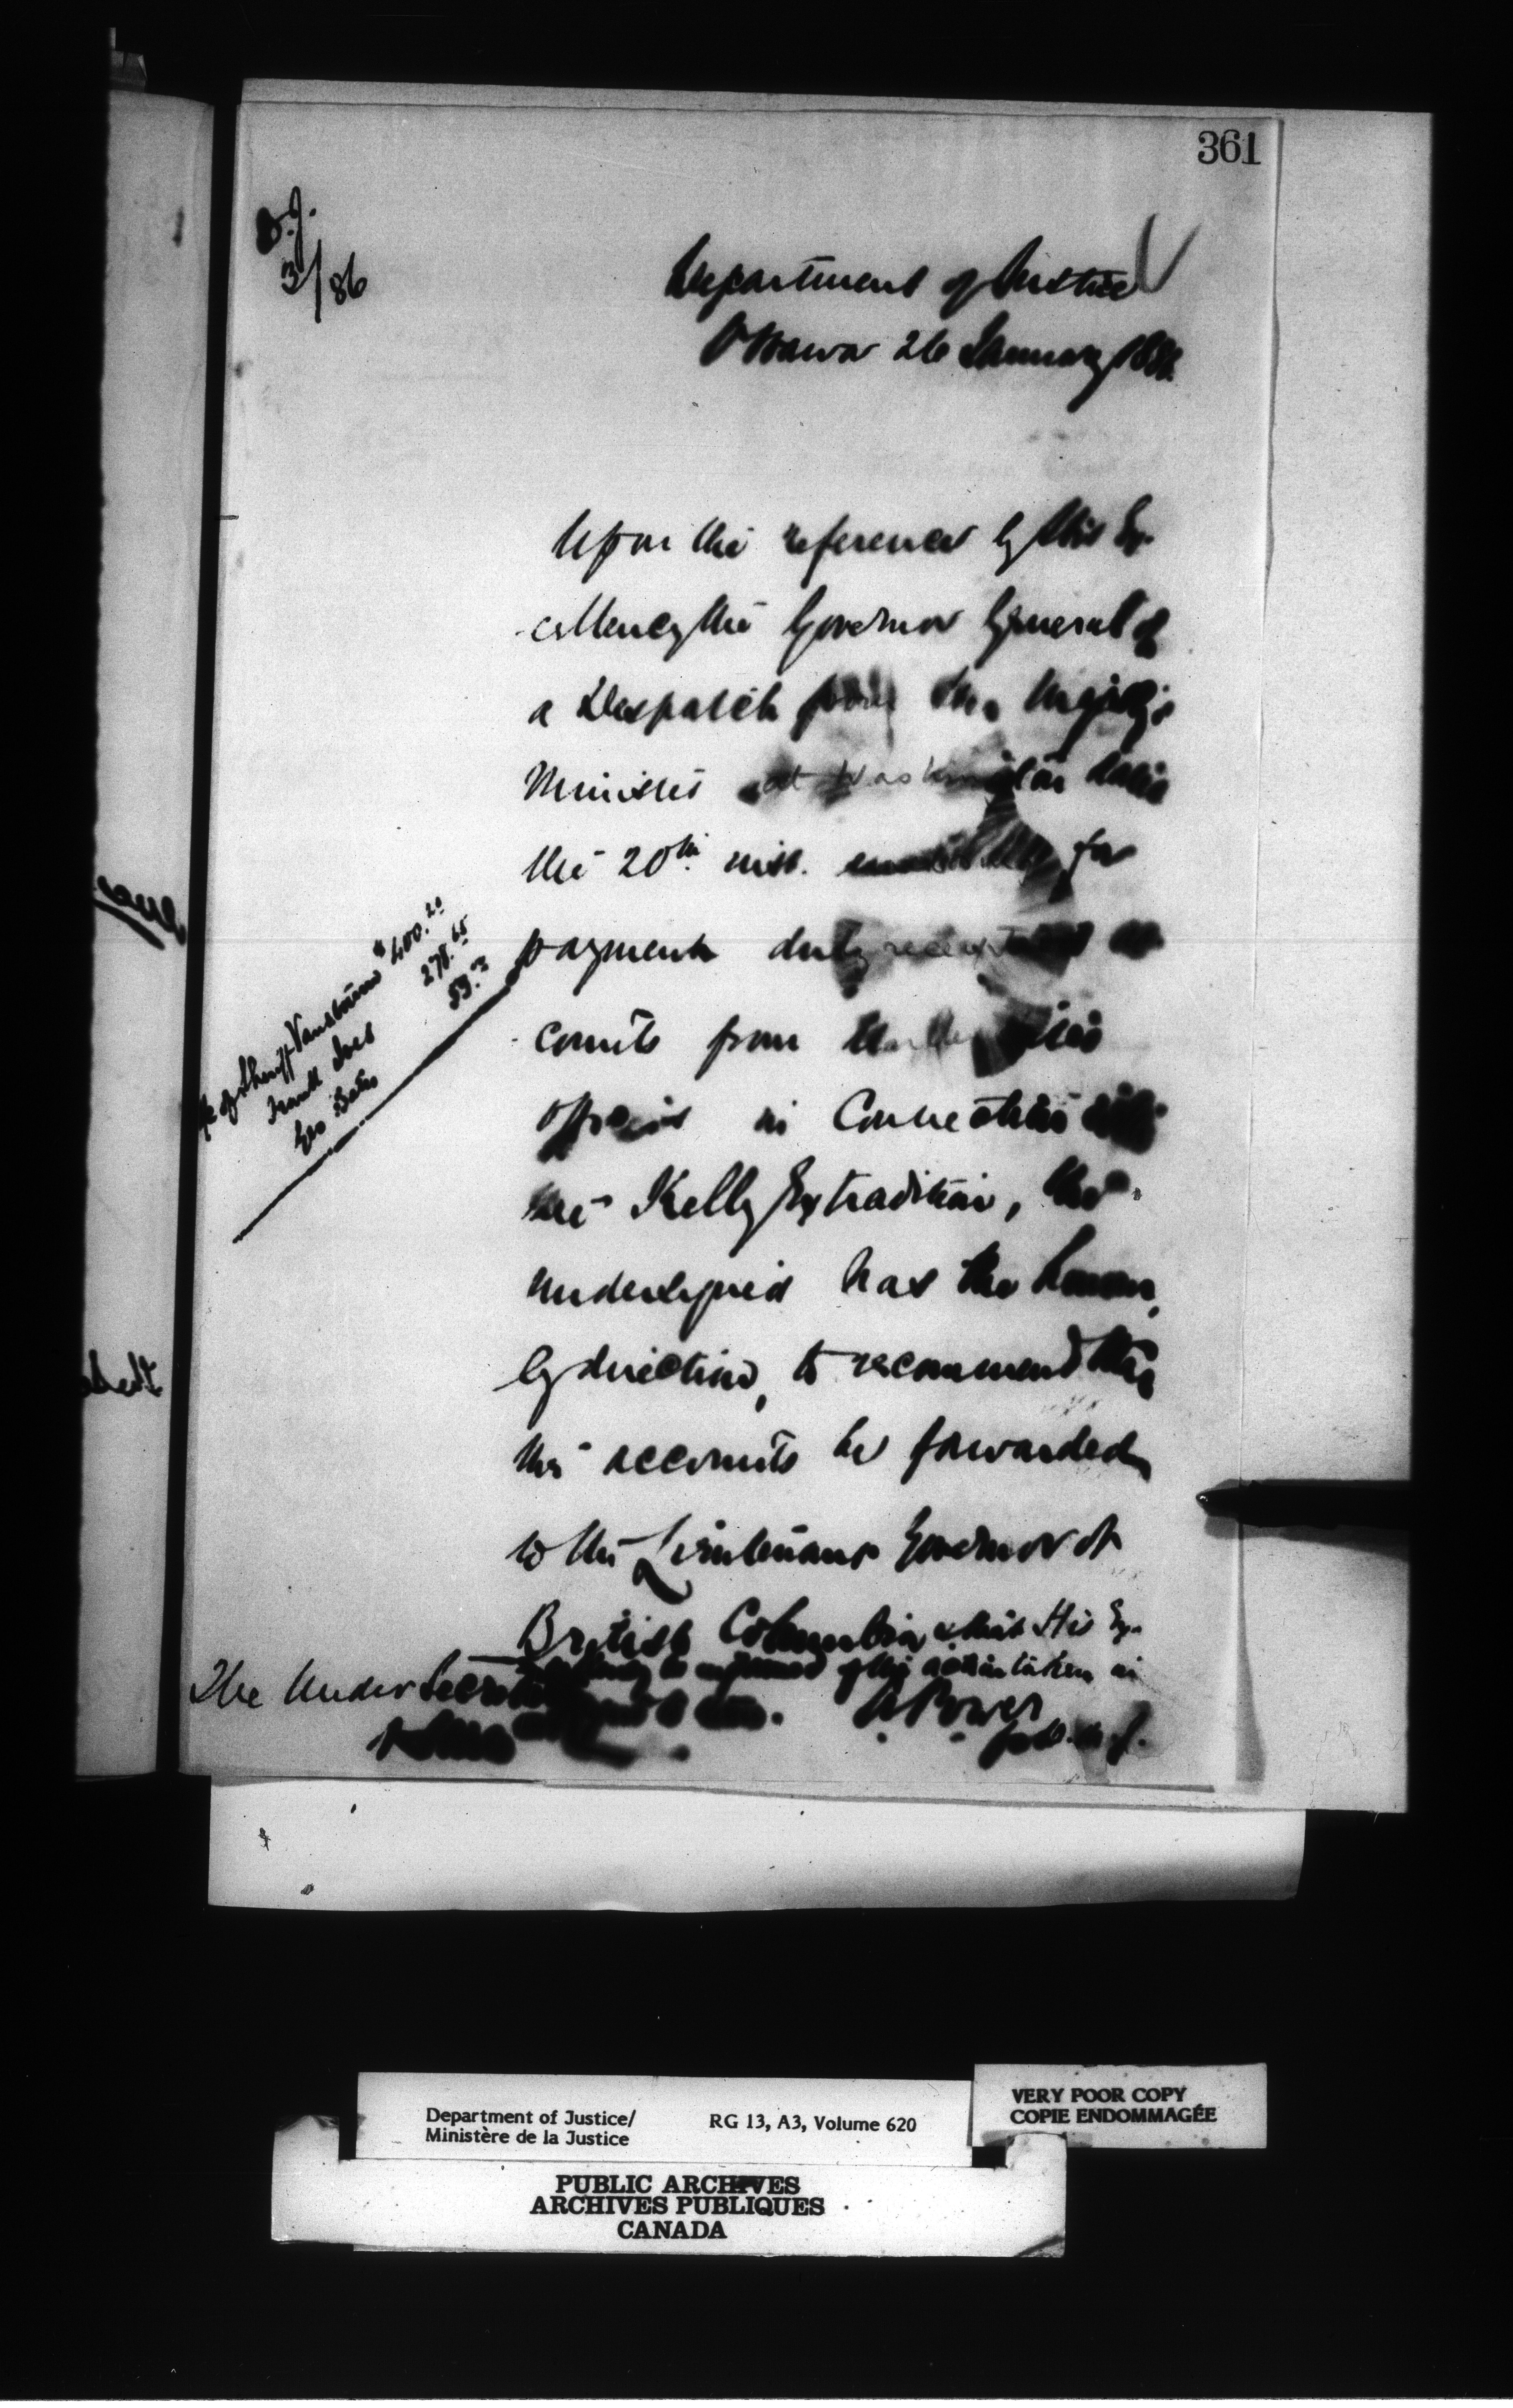 361
D.J.
3/86
Department of Justice
Ottawa 26 January 1886
Upon the reference by His Ex-
cellency the Governor General of
a Despatch from Her Majesty's
Minister at Washington dated
the 20th inst. for
payment duly receipted ac-
counts from
officers in Connection with
the Kelly Extradition, the
undersigned has the honour,
by direction, to recommend that
the accounts be forwarded
to the Lieutenant Governor of
British Columbia & that His Ex-
be informed of the action taken in
A Power
for D.M.J.
The Under Secretary
of Sheriff $400.20
Frank 278.65
Geo Bates 59.
Department of Justice/
Ministère de la Justice
RG 13, A3, Volume 620
VERY POOR COPY
COPIE ENDOMMAGÉE
PUBLIC ARCHIVES
ARCHIVES PUBLIQUES
CANADA